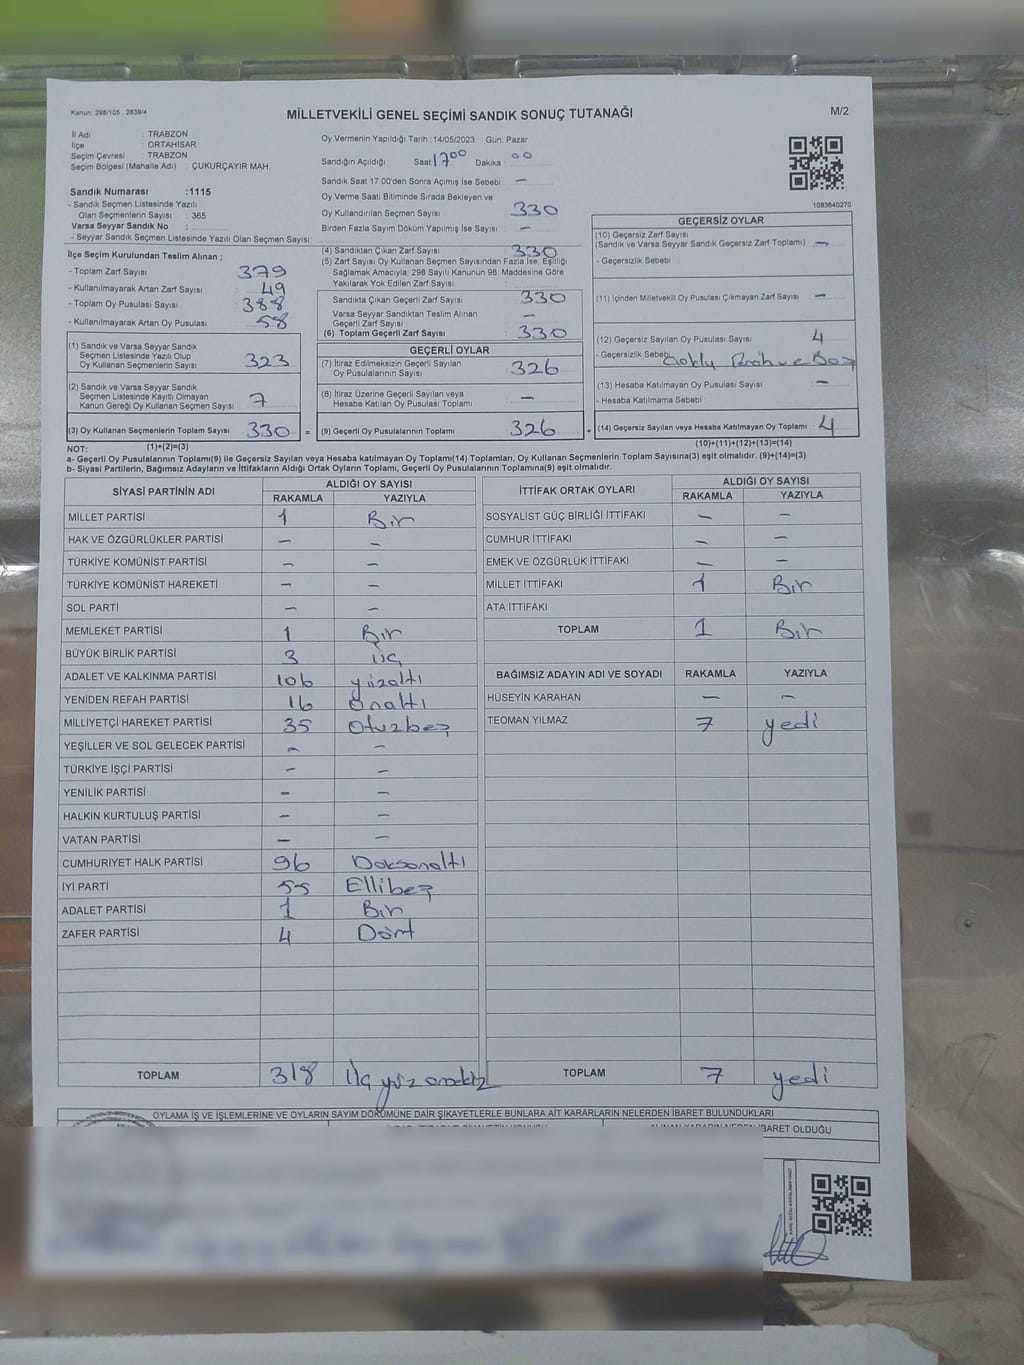 Kanun: 298/105 , 2839/4
MİLLETVEKİLİ GENEL SEÇİMİ SANDIK SONUÇ TUTANAĞI
M/2
İl Adı : TRABZON
İlçe : ORTAHİSAR
Seçim Çevresi : TRABZON
Seçim Bölgesi (Mahalle Adı) : ÇUKURÇAYIR MAH.
Sandık Numarası :1115
- Sandık Seçmen Listesinde Yazılı
Olan Seçmenlerin Sayısı : 365
Varsa Seyyar Sandık No :
- Seyyar Sandık Seçmen Listesinde Yazılı Olan Seçmen Sayısı:
Oy Vermenin Yapıldığı Tarih :14/05/2023 Gün: Pazar
Sandığın Açıldığı Saat 17 00 Dakika : 00
Sandık Saat 17.00'den Sonra Açılmış İse Sebebi : -
Oy Verme Saati Bitiminde Sırada Bekleyen ve
Oy Kullandırılan Seçmen Sayısı 330
Birden Fazla Sayım Döküm Yapılmış İse Sayısı : -
1083640270
İlçe Seçim Kurulundan Teslim Alınan ;
- Toplam Zarf Sayısı : 379
- Kullanılmayarak Artan Zarf Sayısı : 49
- Toplam Oy Pusulası Sayısı : 388
- Kullanılmayarak Artan Oy Pusulası : 58
(1) Sandık ve Varsa Seyyar Sandık
Seçmen Listesinde Yazılı Olup
Oy Kullanan Seçmenlerin Sayısı : 323
(2) Sandık ve Varsa Seyyar Sandık
Seçmen Listesinde Kayıtlı Olmayan
Kanun Gereği Oy Kullanan Seçmen Sayısı : 7
(3) Oy Kullanan Seçmenlerin Toplam Sayısı : 330 =
(4) Sandıktan Çıkan Zarf Sayısı : 330
(5) Zarf Sayısı Oy Kullanan Seçmen Sayısından Fazla İse, Eşitliği
Sağlamak Amacıyla; 298 Sayılı Kanunun 98. Maddesine Göre
Yakılarak Yok Edilen Zarf Sayısı :
Sandıkta Çıkan Geçerli Zarf Sayısı : 330
Varsa Seyyar Sandıktan Teslim Alınan
Geçerli Zarf Sayısı : -
(6) Toplam Geçerli Zarf Sayısı : 330
GEÇERLİ OYLAR
(7) İtiraz Edilmeksizin Geçerli Sayılan
Oy Pusulalarının Sayısı : 326
(8) İtiraz Üzerine Geçerli Sayılan veya
Hesaba Katılan Oy Pusulası Toplamı : -
(9) Geçerli Oy Pusulalarının Toplamı : 326 +
GEÇERSİZ OYLAR
(10) Geçersiz Zarf Sayısı
(Sandık ve Varsa Seyyar Sandık Geçersiz Zarf Toplamı) : -
- Geçersizlik Sebebi :
(11) İçinden Milletvekili Oy Pusulası Çıkmayan Zarf Sayısı : -
(12) Geçersiz Sayılan Oy Pusulası Sayısı : 4
- Geçersizlik Sebebi : ve Boş
(13) Hesaba Katılmayan Oy Pusulası Sayısı : -
- Hesaba Katılmama Sebebi :
(14) Geçersiz Sayılan veya Hesaba Katılmayan Oy Toplamı : 4
NOT: (1)+(2)=(3) (10)+(11)+(12)+(13)=(14)
a- Geçerli Oy Pusulalarının Toplamı(9) ile Geçersiz Sayılan veya Hesaba Katılmayan Oy Toplamı(14) Toplamları, Oy Kullanan Seçmenlerin Toplam Sayısına(3) eşit olmalıdır. (9)+(14)=(3)
b- Siyasi Partilerin, Bağımsız Adayların ve İttifakların Aldığı Ortak Oyların Toplamı, Geçerli Oy Pusulalarının Toplamına(9) eşit olmalıdır.
SİYASİ PARTİNİN ADI ALDIĞI OY SAYISI
RAKAMLA YAZIYLA
MİLLET PARTİSİ 1 Bir
HAK VE ÖZGÜRLÜKLER PARTİSİ - -
TÜRKİYE KOMÜNİST PARTİSİ - -
TÜRKİYE KOMÜNİST HAREKETİ - -
SOL PARTİ - -
MEMLEKET PARTİSİ 1 Bir
BÜYÜK BİRLİK PARTİSİ 3 üç
ADALET VE KALKINMA PARTİSİ 106 yüzaltı
YENİDEN REFAH PARTİSİ 16 Onaltı
MİLLİYETÇİ HAREKET PARTİSİ 35 Otuzbeş
YEŞİLLER VE SOL GELECEK PARTİSİ - -
TÜRKİYE İŞÇİ PARTİSİ - -
YENİLİK PARTİSİ - -
HALKIN KURTULUŞ PARTİSİ - -
VATAN PARTİSİ - -
CUMHURİYET HALK PARTİSİ 96 Doksanaltı
İYİ PARTİ 55 Ellibeş
ADALET PARTİSİ 1 Bir
ZAFER PARTİSİ 4 Dört
TOPLAM 318 üçyüz onsekiz
İTTİFAK ORTAK OYLARI ALDIĞI OY SAYISI
RAKAMLA YAZIYLA
SOSYALİST GÜÇ BİRLİĞİ İTTİFAKI - -
CUMHUR İTTİFAKI - -
EMEK VE ÖZGÜRLÜK İTTİFAKI - -
MİLLET İTTİFAKI 1 Bir
ATA İTTİFAKI
TOPLAM 1 Bir
BAĞIMSIZ ADAYIN ADI VE SOYADI RAKAMLA YAZIYLA
HÜSEYİN KARAHAN - -
TEOMAN YILMAZ 7 yedi
TOPLAM 7 yedi
OYLAMA İŞ VE İŞLEMLERİNE VE OYLARIN SAYIM DÖKÜMÜNE DAİR ŞİKAYETLERLE BUNLARA AİT KARARLARIN NELERDEN İBARET BULUNDUKLARI
ALINAN KARARIN NEDEN İBARET OLDUĞU